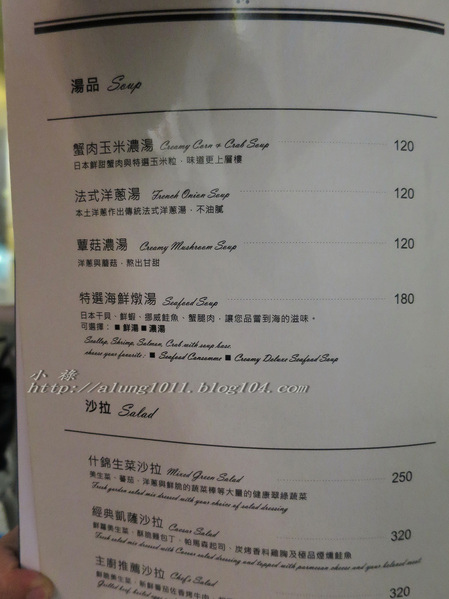 湯品 Soup
蟹肉玉米濃湯 Creamy Corn & Crab Soup 120
日本鮮甜蟹肉與特選玉米粒，味道更上層樓
法式洋蔥湯 French Onion Soup 120
本土洋蔥作出傳統法式洋蔥湯，不油膩
蕈菇濃湯 Creamy Mushroom Soup 120
洋蔥與蘑菇，熬出甘甜
特選海鮮燉湯 Seafood Soup 180
日本干貝，鮮蝦，挪威鮭魚，蟹腿肉，讓您品嘗到海的滋味。
可選擇： ■ 鮮湯 ■ 濃湯
Scallop, Shrimp, Salmon, Crab with soup base.
choose your favorite: ■ Seafood Consomme ■ Creamy Deluxe Seafood Soup
小祿
http://alung1011.blog104.com/
沙拉 Salad
什錦生菜沙拉 Mixed Green Salad 250
美生菜，蕃茄，洋蔥與鮮脆的蔬菜棒等大量的健康翠綠蔬菜
Fresh garden salad mix dressed with your choice of salad dressing
經典凱薩沙拉 Caesar Salad 320
鮮蘿美生菜，酥脆麵包丁，帕瑪森起司，炭烤香料雞胸及極品煙燻鮭魚
Fresh salad mix dressed with Caesar salad dressing and topped with parmesan cheese and your balanced meat
主廚推薦沙拉 Chef's Salad 320
鮮脆美生菜，新鮮蕃茄佐香烤牛肉
Grilled beef, boiled